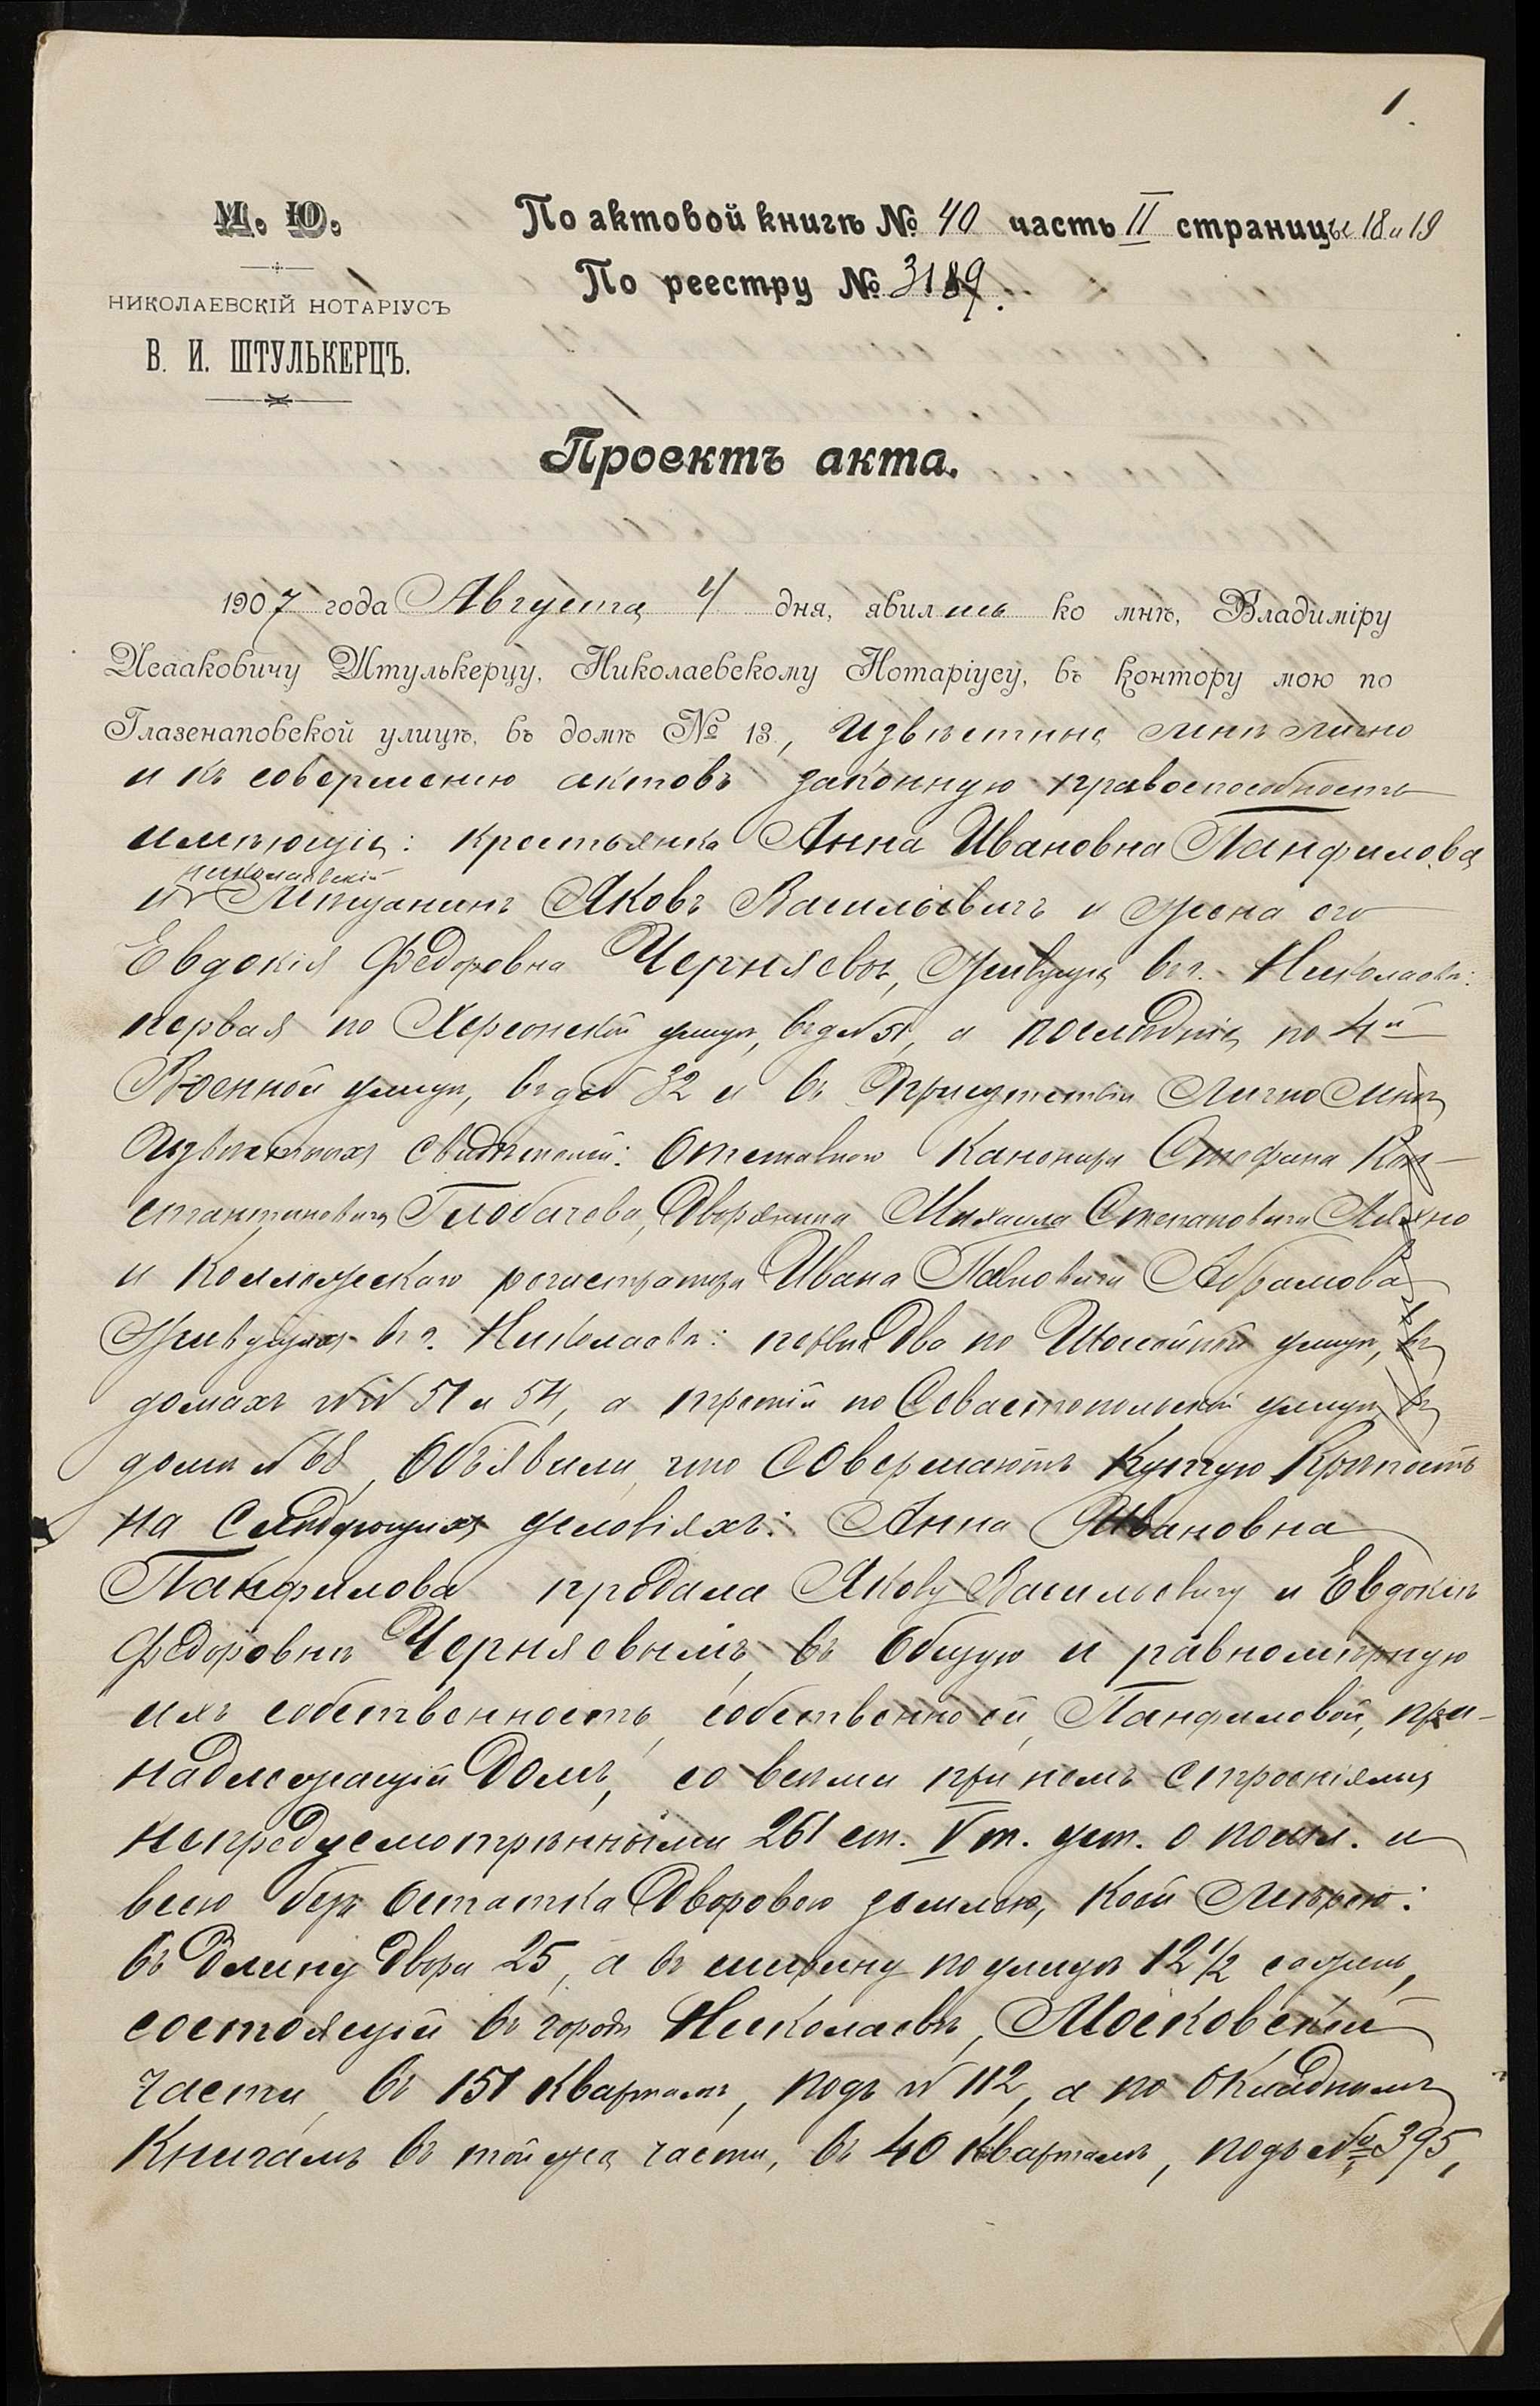 1.
М. Ю.
НИКОЛАЕВСКІЙ НОТАРІУСЪ
В. И. ШТУЛЬКЕРЦЪ.
По актовой книгѣ № 40 часть II страницы 18 и 19
По реестру № 3189.
Проектъ акта.
1907 года Августа 4 дня, явились ко мнѣ, Владиміру
Исааковичу Штулькерцу, Николаевскому Нотаріусу, въ контору мою по
Глазенаповской улицѣ, въ домѣ № 13, извѣстные мнѣ лично
и къ совершенію актовъ законную правоспособность
имѣющіе: крестьянка Анна Ивановна Панфилова
николаевскій
и Мѣщанинъ Яковъ Васильевичъ и жена его
Евдокія Федоровна Черняевы, живущіе въ г. Николаевѣ:
первая по Херсонской улицѣ, въ д № 51, а послѣдніе по 4й
Военной улицѣ, въ д № 32 и въ присутствіи лично мнѣ
извѣстныхъ свидѣтелей: отставного канонира Стефана Кон-
стантиновича Глобачева, Дворянина Михаила Степановича
и Коллежскаго регистратора Ивана Павловича Абрамова
живущихъ въ г. Николаевѣ: первые два по Шоссейной улицѣ, въ
домахъ №№ 51 и 54, а третій по Севастопольской улицѣ въ
домѣ № 68, объявили, что совершаютъ купчую крѣпость
на слѣдующихъ условіяхъ: Анна Ивановна
Панфилова продала Якову Васильевичу и Евдокіи
Федоровнѣ Черняевымъ, въ общую и равномѣрную
ихъ собственность, собственно ей, Панфиловой, при-
надлежащій домъ, со всѣми при немъ строеніями
непредусмотрѣнными 261 ст. V т. уст. о пошл. и
всею безъ остатка дворовою землею, коей мѣрою:
въ длину двора 25, а въ ширину по улицѣ 12½ сажень,
состоящій въ городѣ Николаевѣ, Московской
части, въ 151 кварталѣ, подъ № 112, а по окладнымъ
книгамъ въ той же части, въ 40 кварталѣ, подъ № 395,